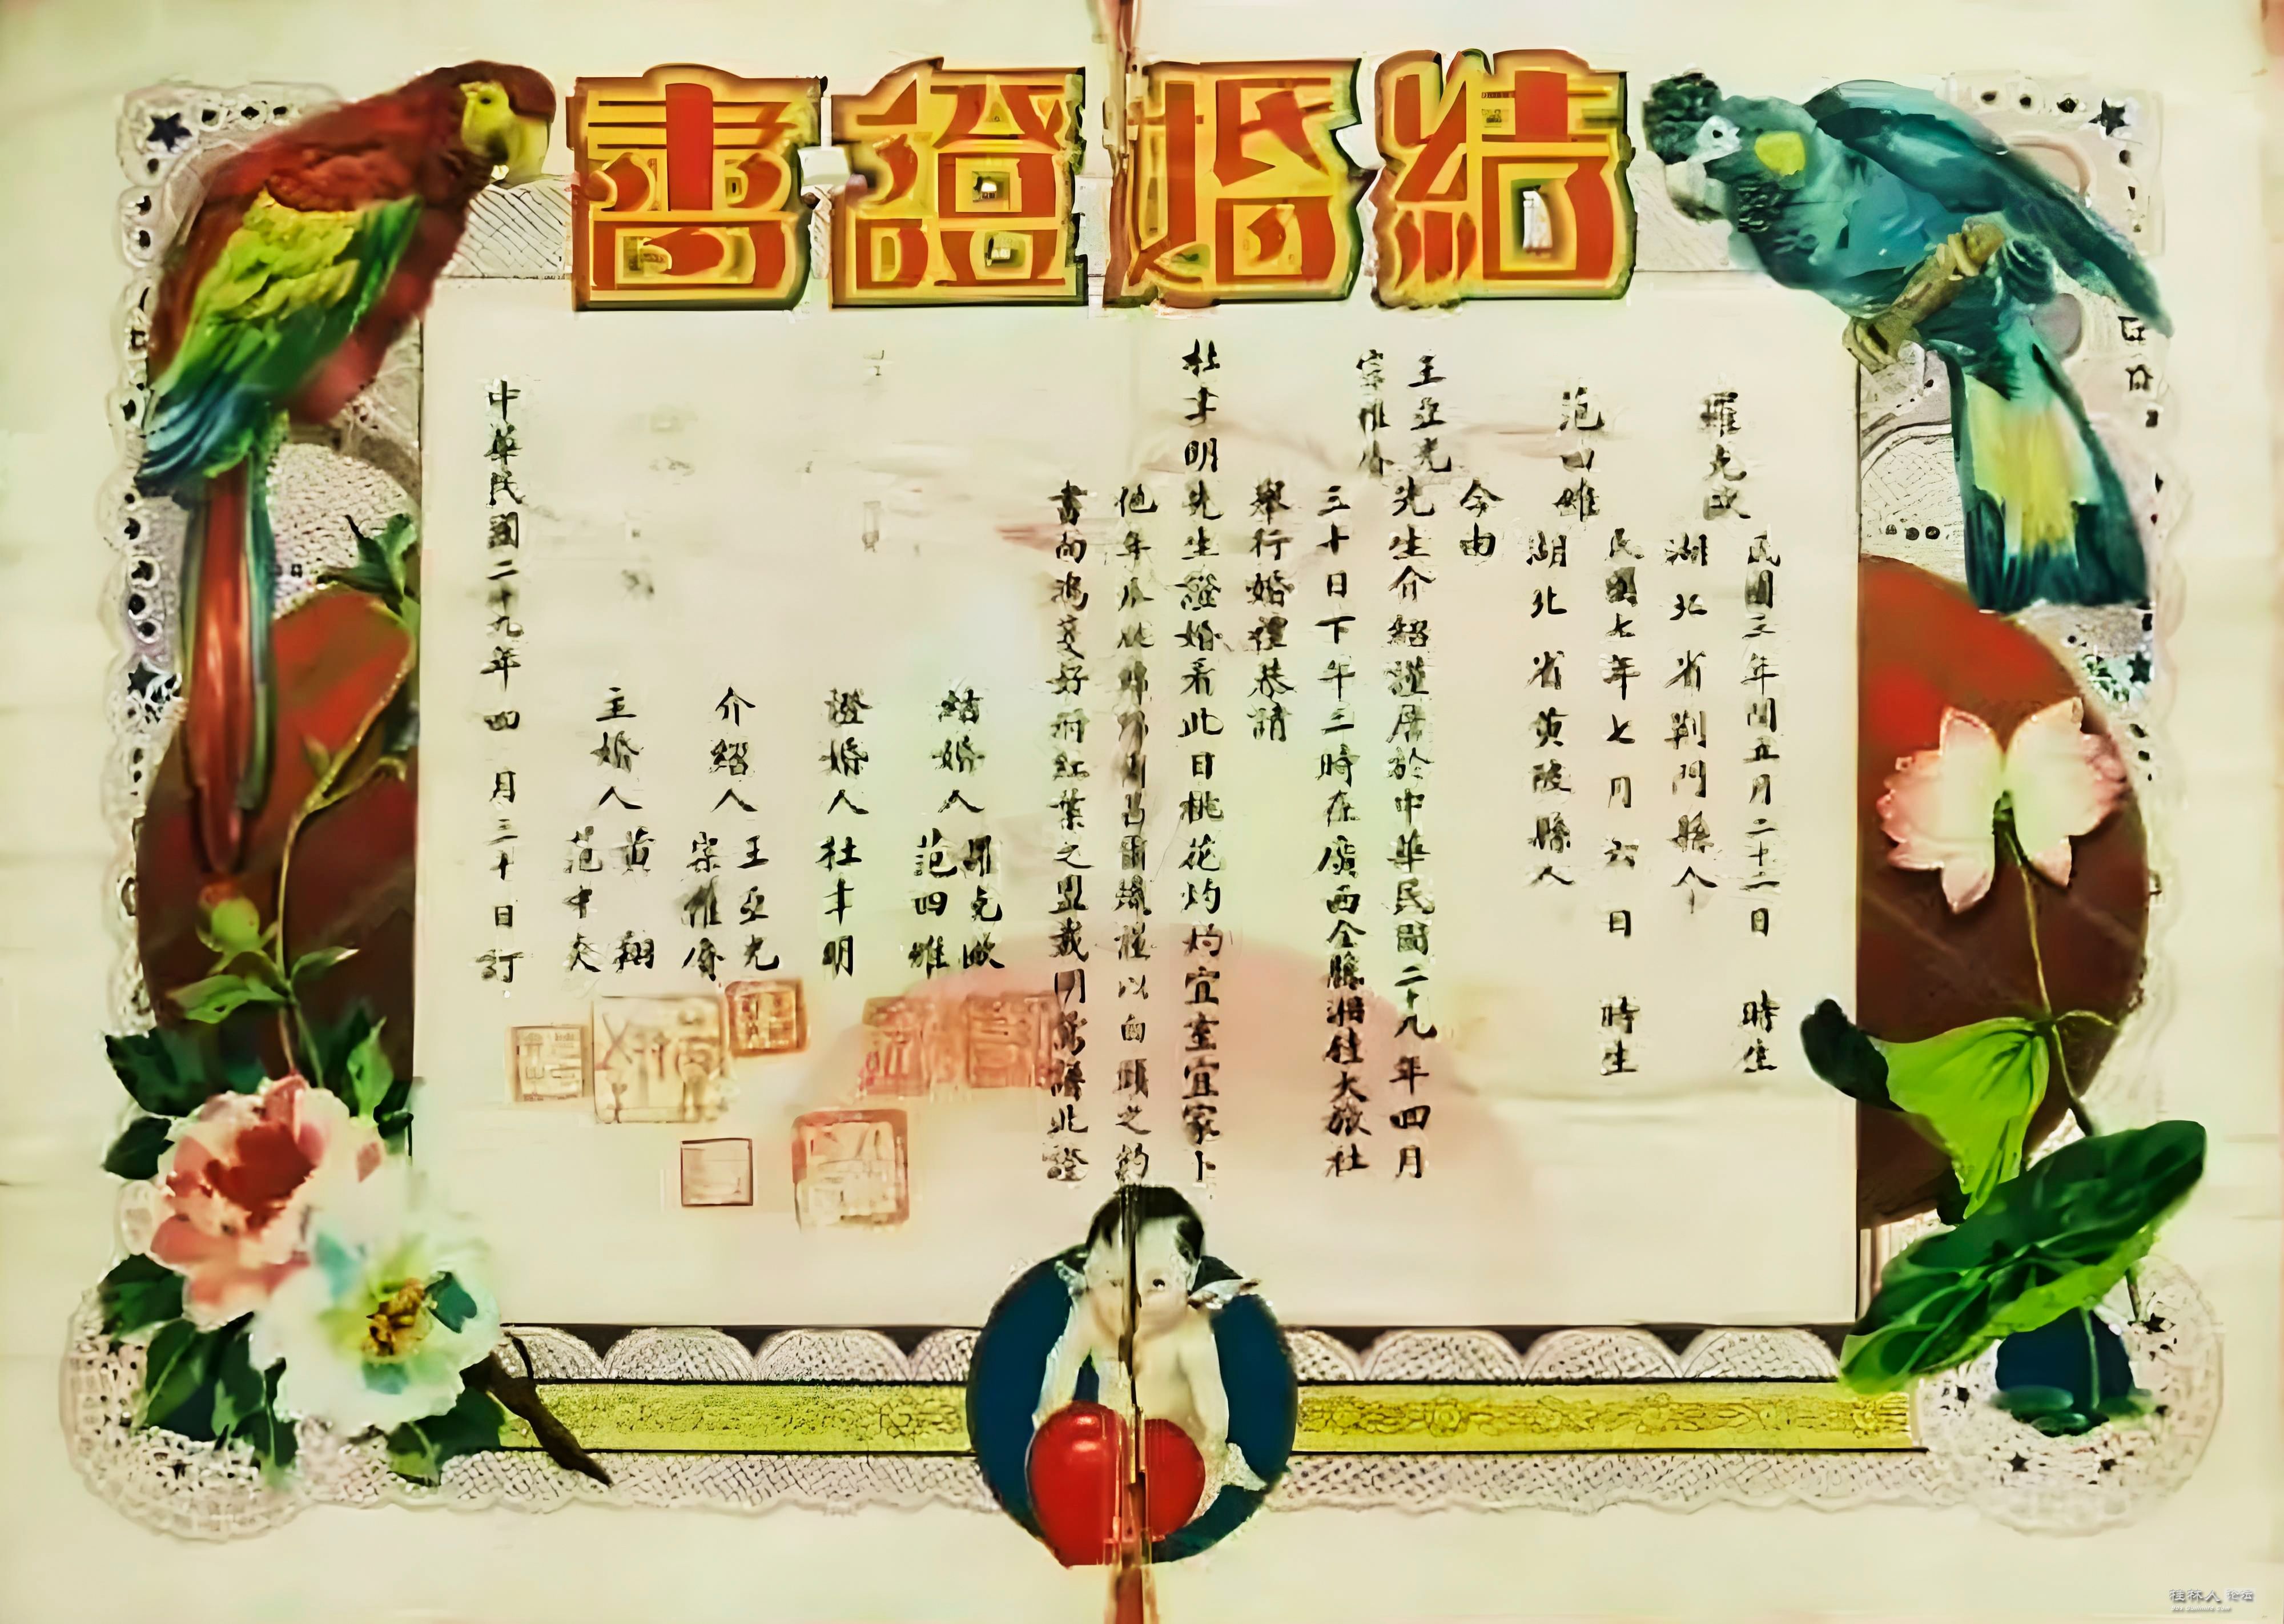 結婚證書
羅克成
民國三年閏五月二十二日 時生
湖北省荆門縣人
范四雄
民國七年七月六日 時生
湖北省黄陂縣人
今由
王亞光
宗維
先生介紹謹居於中華民國二十九年四月
三十日下午三時在廣西全縣湘桂大旅社
舉行婚禮恭請
杜丰明先生證婚看此日桃花灼灼宜室宜家卜
他年瓜瓞綿綿爾昌爾熾謹以白頭之約
書向鴻箋好將紅葉之盟載明鴛譜此證
結婚人
羅克成
范四雄
證婚人 杜丰明
介紹人
王亞光
宗維
主婚人
黄翔
范中炎
中華民國二十九年四月三十日訂
桂林人论坛